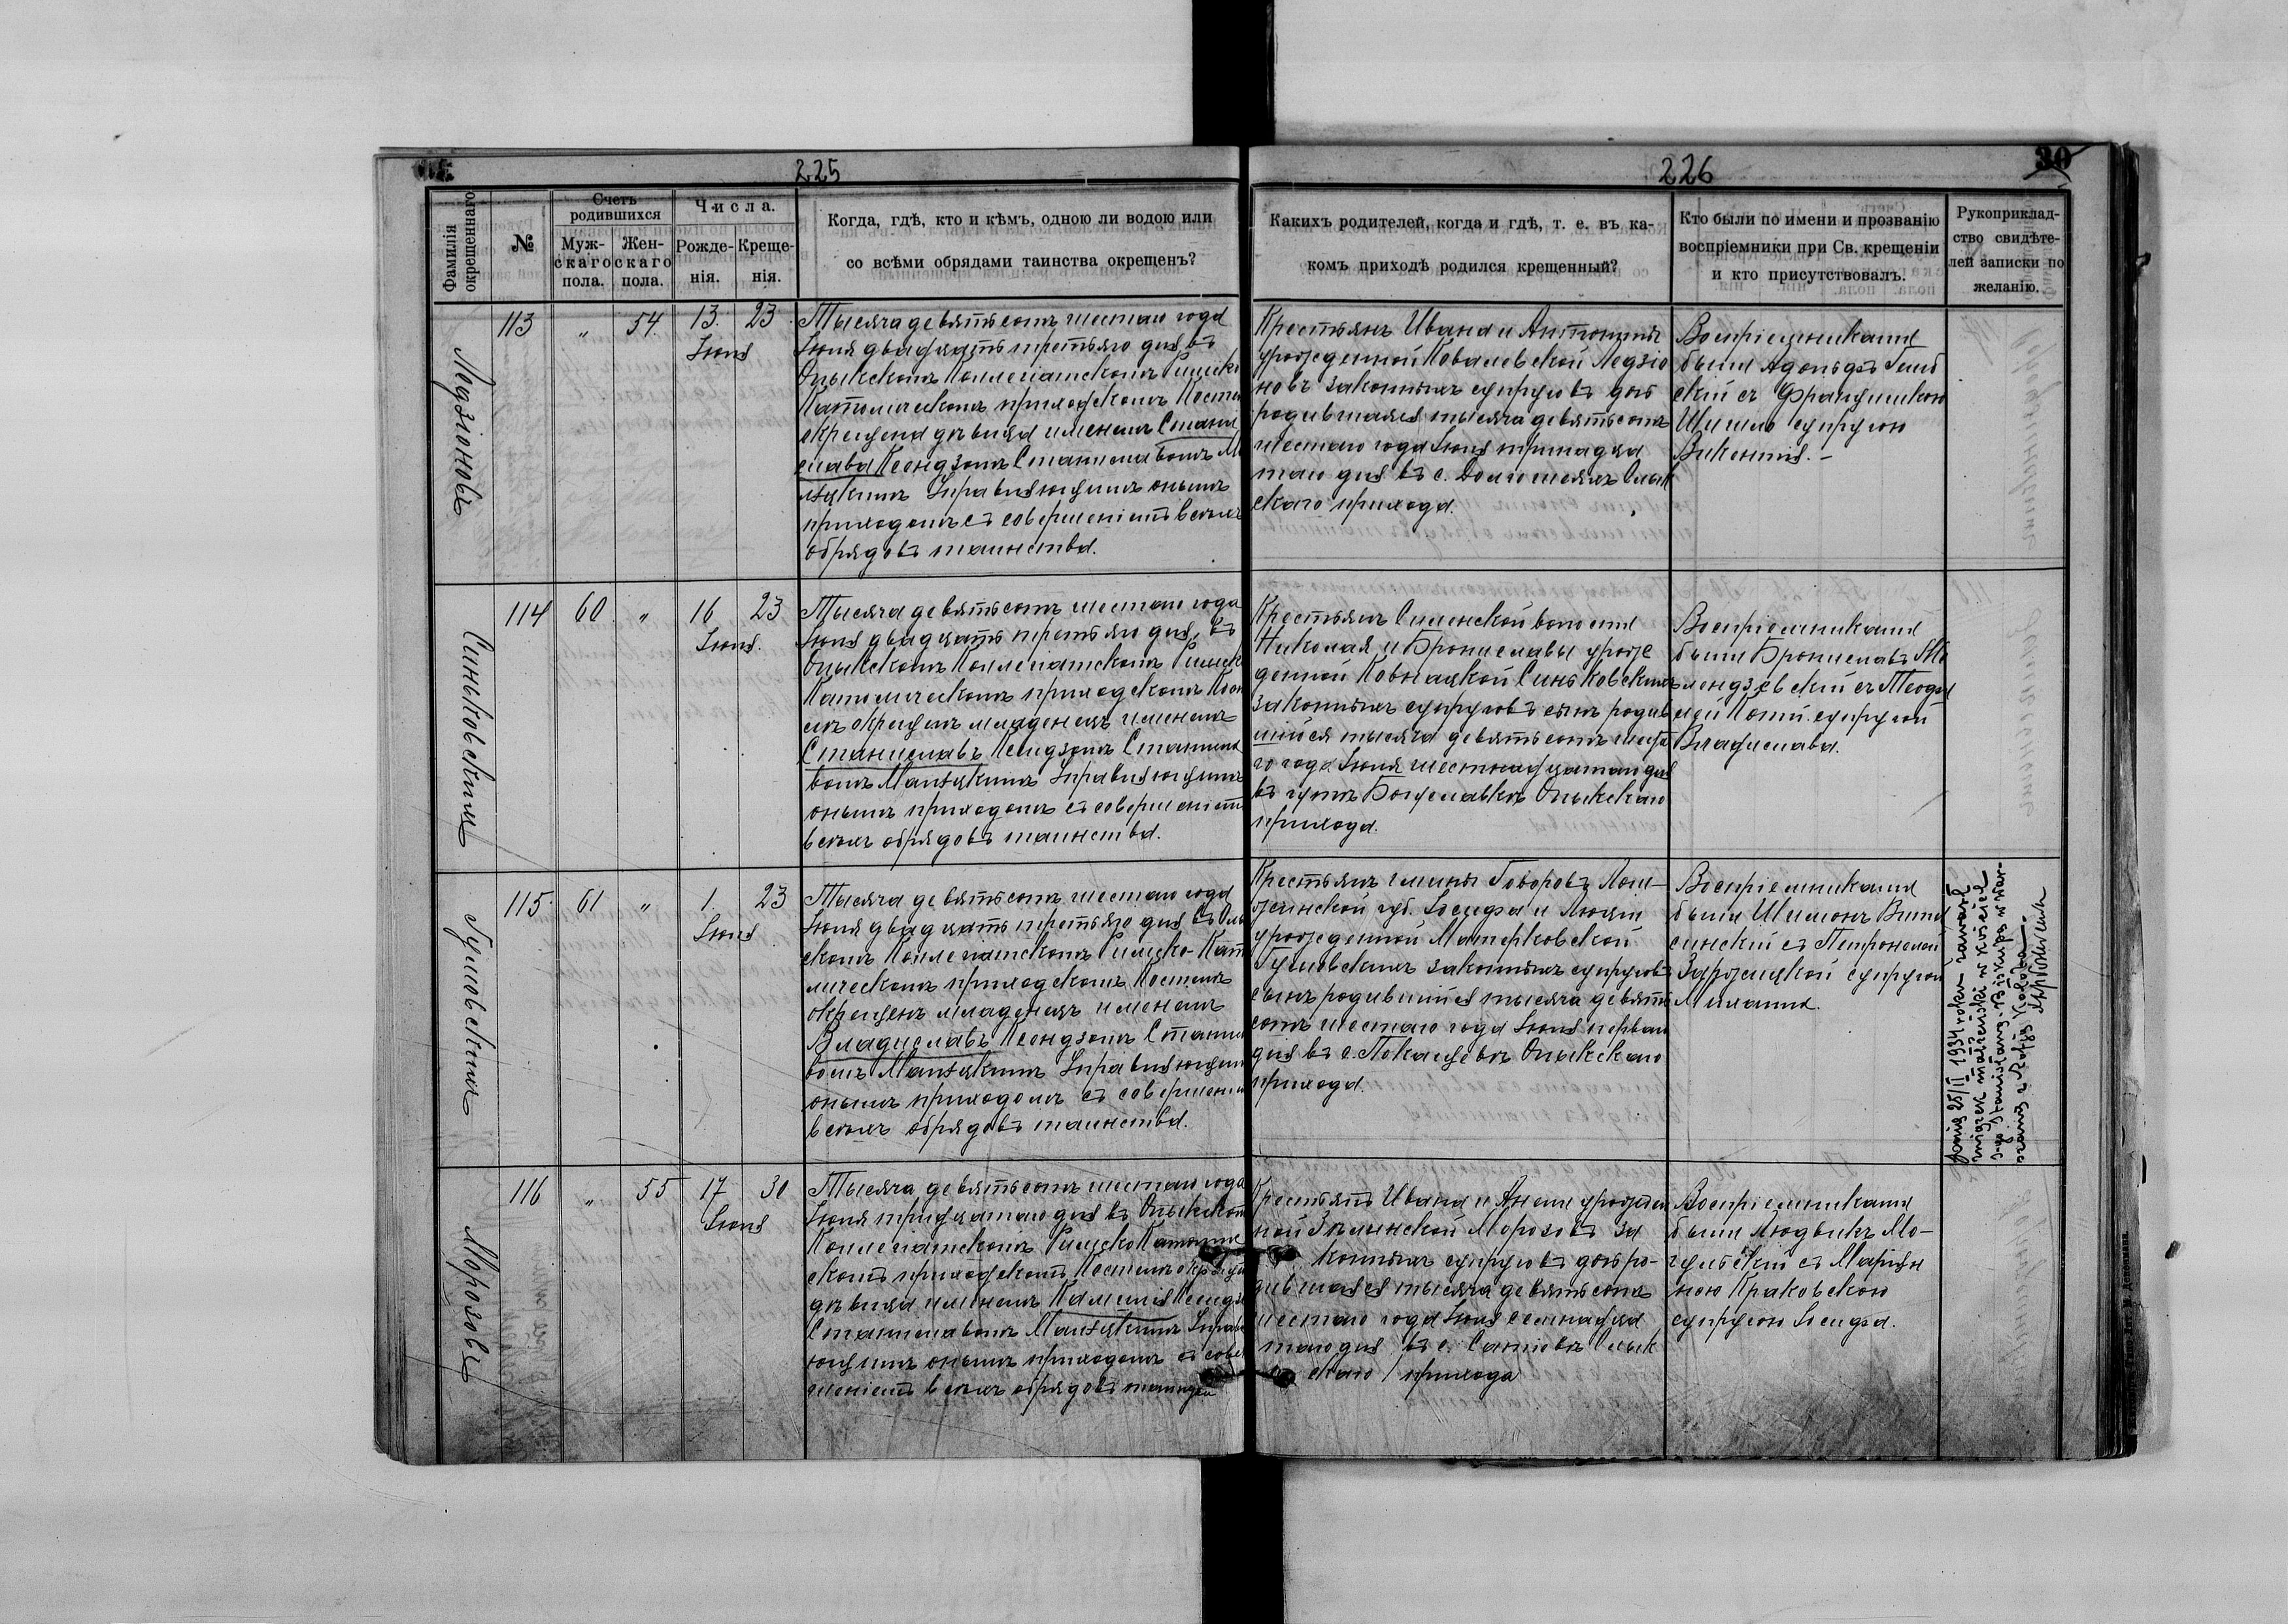 225
Фамилія окрещеннаго
№
Счетъ родившихся
Муж-скаго пола.
Жен-скаго пола.
Числа.
Рожде-нія.
Креще-нія.
Когда, гдѣ, кто и кѣмъ, одною ли водою или
со всѣми обрядами таинства окрещенъ?
226
30
Какихъ родителей, когда и гдѣ, т. е. въ ка-
комъ приходѣ родился крещенный?
Кто были по имени и прозванію
воспріемники при Св. крещеніи
и кто присутствовалъ.
Рукоприклад-
ство свидѣте-
лей записки по
желанію.
Ледзіоновъ
113 „ 54. 13. 23
Іюня
Тысяча девятьсотъ шестаго года
Іюня двадцать третьяго дня въ
Олыкскомъ Коллегіатскомъ Римско
Католическомъ приходскомъ Костел
окрещена дѣвица именемъ Стани
слава Ксендзомъ Станиславомъ
Управляющимъ онымъ
приходомъ съ совершеніемъ всѣхъ
обрядовъ таинства.
Крестьянъ Ивана и Антонины
урожденной Ковалевской Ледзіо
новъ законныхъ супруговъ дочь
родившаяся тысяча девятьсотъ
шестаго года Іюня тринадца
таго дня въ с. Долгошеяхъ Олык
скаго прихода.
Воспріемниками
были Адольфъ
скій съ Францишкою
супругою
Викентія. –
Синьковскій
114 60 „ 16 23
Іюня.
Тысяча девятьсотъ шестаго года
Іюня двадцать третьяго дня, въ
Олыкскомъ Коллегіатскомъ Римск
Католическомъ приходскомъ Кос
лѣ окрещенъ младенецъ именемъ
Станиславъ Ксендзомъ Станисла
вомъ Управляющимъ
онымъ приходомъ съ совершеніемъ
всѣхъ обрядовъ таинства.
Крестьянъ волости
Николая и Брониславы урож
денной Синьковскихъ
законныхъ супруговъ сынъ родив
шійся тысяча девятьсотъ шеста
го года Іюня шестнадцатаго дня
въ Богуславкѣ Олыкскаго
прихода.
Воспріемниками
были Брониславъ
съ Теофи
лей супругой
Владислава.
Гумовскій
115. 61 „ 1. 23
Іюня
Тысяча девятьсотъ шестаго года
Іюня двадцать третьяго дня въ Олы
скомъ Коллегіатскомъ Римско-Като
лическомъ приходскомъ Костелѣ
окрещенъ младенецъ именемъ
Владиславъ Ксендзомъ Станисла
вомъ Управляющим
онымъ приходомъ съ совершеніем
всѣхъ обрядовъ таинства.
Крестьянъ гмины Говоровъ Лом-
жинской губ. Іосифа и Люціи
урожденной Матерковской
Гумовскихъ законныхъ супруговъ
сынъ родившійся тысяча девять
сотъ шестаго года Іюня перваго
дня въ с. Покащевѣ Олыкскаго
прихода.
Воспріемниками
были Шимонъ
съ Петронелей
супругой
dnia 25/II 1934 roku zawarł
związek małżeński w kościele
z Zofją
Морозовъ
116 „ 55 17 30
Іюня
Тысяча девятьсотъ шестаго года
Іюня тридцатаго дня въ Олыкском
Коллегіатскомъ Римско Католиче
скомъ приходскомъ Костелѣ окрещен
дѣвица именемъ Камилія Ксендз
Станиславомъ Управл
ющимъ онымъ приходомъ съ совер
шеніемъ всѣхъ обрядовъ таинства
Крестьянъ Ивана и Анели урожден
ной Морозовъ за
конныхъ супруговъ дочь ро-
дившаяся тысяча девятьсотъ
шестаго года Іюня семнадца
таго дня въ с. Олык
скаго прихода
Воспріемниками
были Людвикъ Мо-
съ Маріян
ною Краковскою
супругою Іосифа.